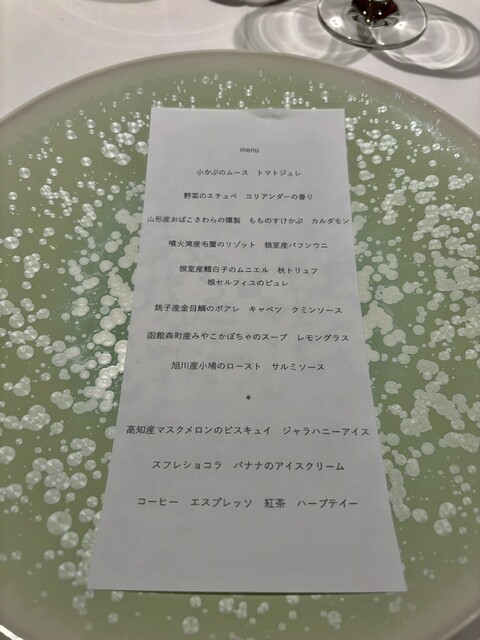 menu
小かぶのムース　トマトジュレ
野菜のエチュベ　コリアンダーの香り
山形産おばこさわらの燻製　もものすけかぶ　カルダモン
噴火湾産毛蟹のリゾット　根室産バフンウニ
根室産鱈白子のムニエル　秋トリュフ
根セルフィユのピュレ
銚子産金目鯛のポアレ　キャベツ　クミンソース
函館森町産みやこかぼちゃのスープ　レモングラス
旭川産小鳩のロースト　サルミソース
*
高知産マスクメロンのビスキュイ　ジャラハニーアイス
スフレショコラ　バナナのアイスクリーム
コーヒー　エスプレッソ　紅茶　ハーブティー